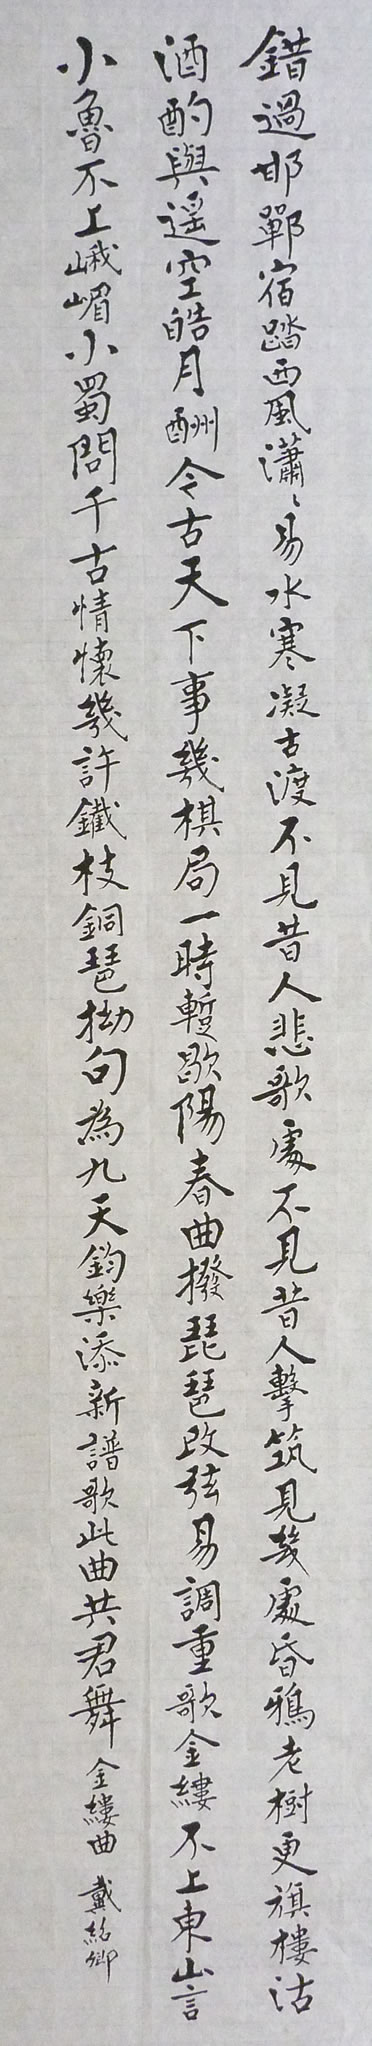 錯過邯鄲宿踏西風瀟〻易水寒凝古渡不見昔人悲歌處不見昔人擊筑見幾處昏鴉老樹更旗樓沽
酒酌與遥空皓月酬令古天下事幾棋局一時暫歇陽春曲撥琵琶改弦易調重歌金縷不上東山言
小魯不上峨嵋小蜀問千古情懷幾許鐵枝銅琶拗句為九天鈞樂添新譜歌此曲共君舞 金縷曲 戴紹卿